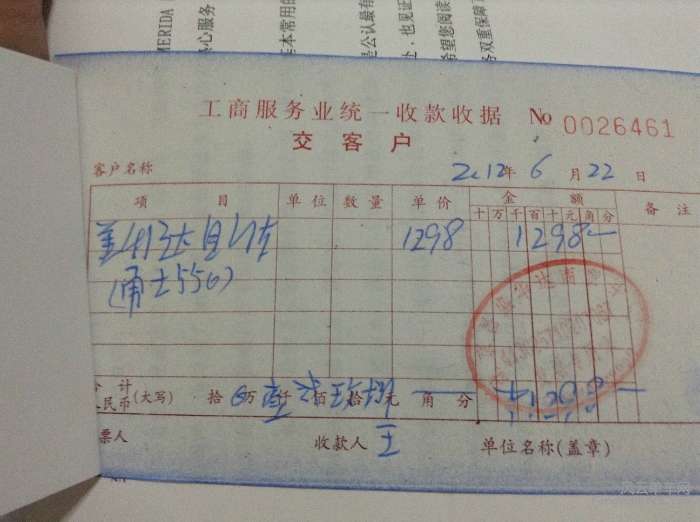 MERIDA
心服务
本常用的
是公认最有
处，也见证
希望您阅读
务双重保障
工商服务业统一收款收据 No 0026461
交客户
客户名称 2012年6月22日
项目 单位 数量 单价 金额 备注
十万千百十元角分
美利达自行车 1298 1298—
(勇士550)
合计
人民币(大写) 拾 万 仟 佰 拾 元 角 分
票人 收款人 王 单位名称(盖章)
风云单车网